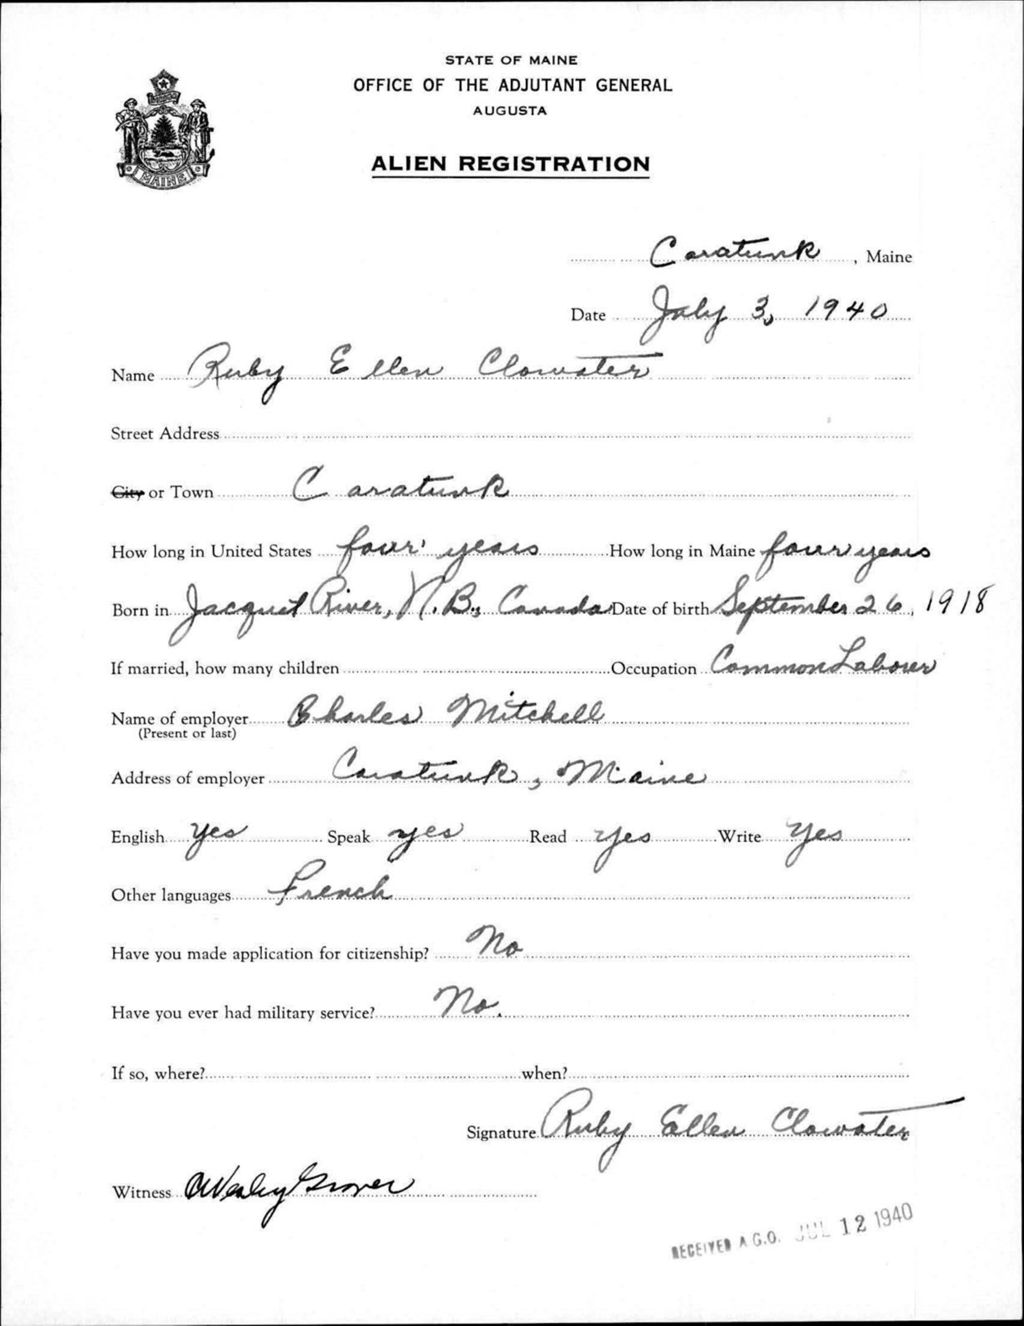 STATE OF MAINE
OFFICE OF THE ADJUTANT GENERAL
AUGUSTA
ALIEN REGISTRATION
MAINE
Caratunk, Maine
Date July 3, 1940
Name Ruby Ellen Clowater
Street Address
City or Town Caratunk
How long in United States four years How long in Maine four years
Born in Jacquet River, N.B., Canada Date of birth September 26, 1918
If married, how many children Occupation Common Laborer
Name of employer Charles Mitchell
(Present or last)
Address of employer Caratunk, Maine
English Yes Speak yes Read Yes Write Yes
Other languages French
Have you made application for citizenship? No
Have you ever had military service? No.
If so, where? when?
Signature Ruby Ellen Clowater
Witness Wesley Grover
RECEIVED A.G.O. JUL 12 1940